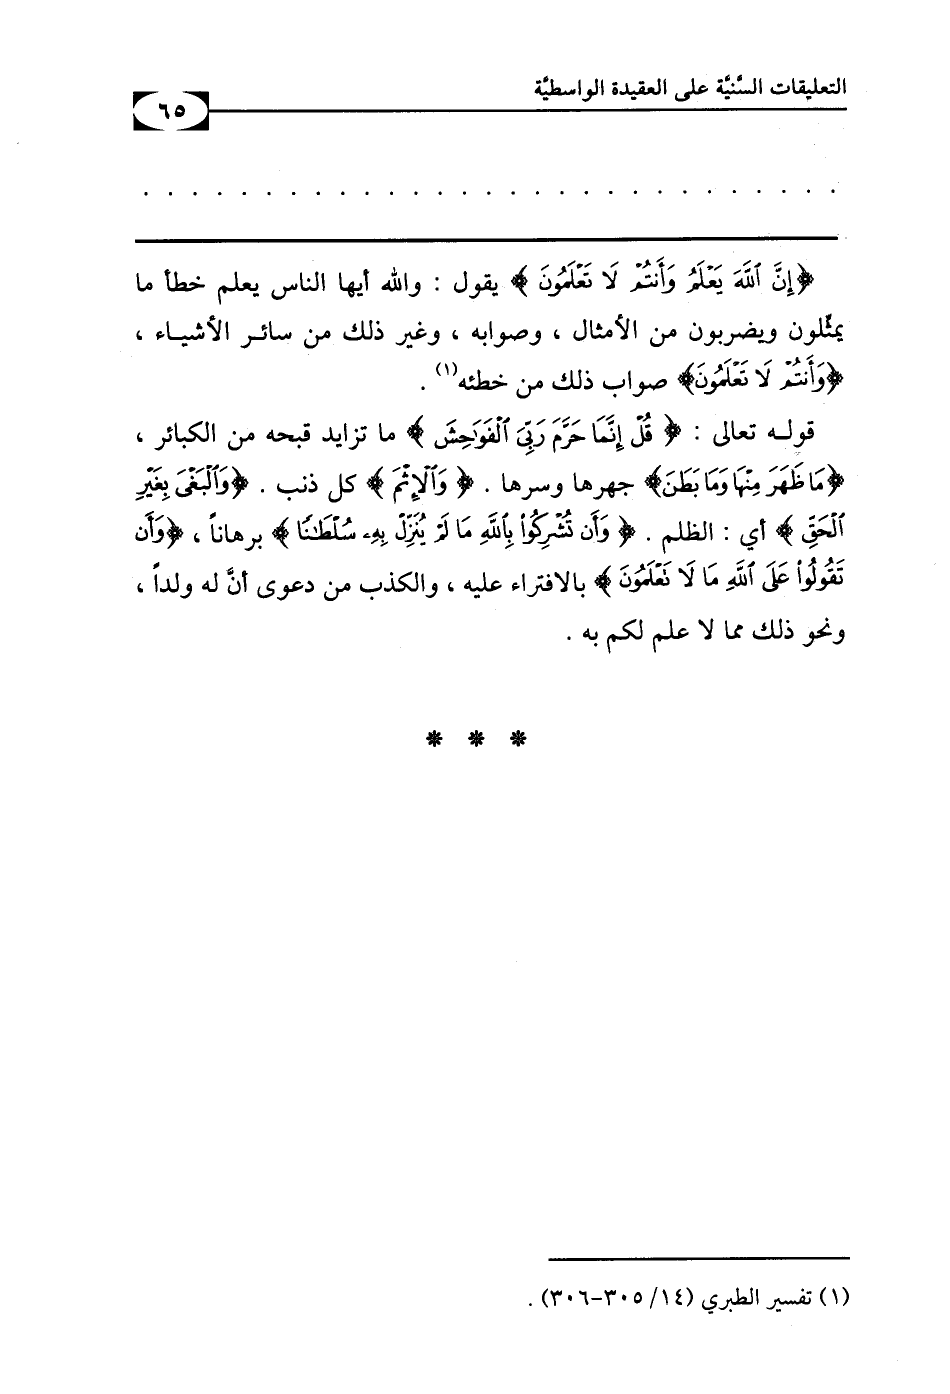 التعليقات السَّنيَّة على العقيدة الواسطيَّة
٦٥
. . . . . . . . . . . . . . . . . . . . . . . . . . . . .
﴿إِنَّ ٱللَّهَ يَعْلَمُ وَأَنتُمْ لَا تَعْلَمُونَ﴾ يقول : والله أيها الناس يعلم خطأ ما
يمثّلون ويضربون من الأمثال ، وصوابه ، وغير ذلك من سائر الأشياء ،
﴿وَأَنتُمْ لَا تَعْلَمُونَ﴾ صواب ذلك من خطئه(١) .
قوله تعالى : ﴿ قُلْ إِنَّمَا حَرَّمَ رَبِّيَ ٱلْفَوَٰحِشَ ﴾ ما تزايد قبحه من الكبائر ،
﴿مَا ظَهَرَ مِنْهَا وَمَا بَطَنَ﴾ جهرها وسرها . ﴿ وَٱلْإِثْمَ ﴾ كل ذنب . ﴿وَٱلْبَغْىَ بِغَيْرِ
ٱلْحَقِّ ﴾ أي : الظلم . ﴿ وَأَن تُشْرِكُوا۟ بِٱللَّهِ مَا لَمْ يُنَزِّلْ بِهِۦ سُلْطَٰنًا ﴾ برهاناً ، ﴿وَأَن
تَقُولُوا۟ عَلَى ٱللَّهِ مَا لَا تَعْلَمُونَ ﴾ بالافتراء عليه ، والكذب من دعوى أنَّ له ولداً ،
ونحو ذلك مما لا علم لكم به .
* * *
(١) تفسير الطبري (١٤/ ٣٠٥-٣٠٦) .